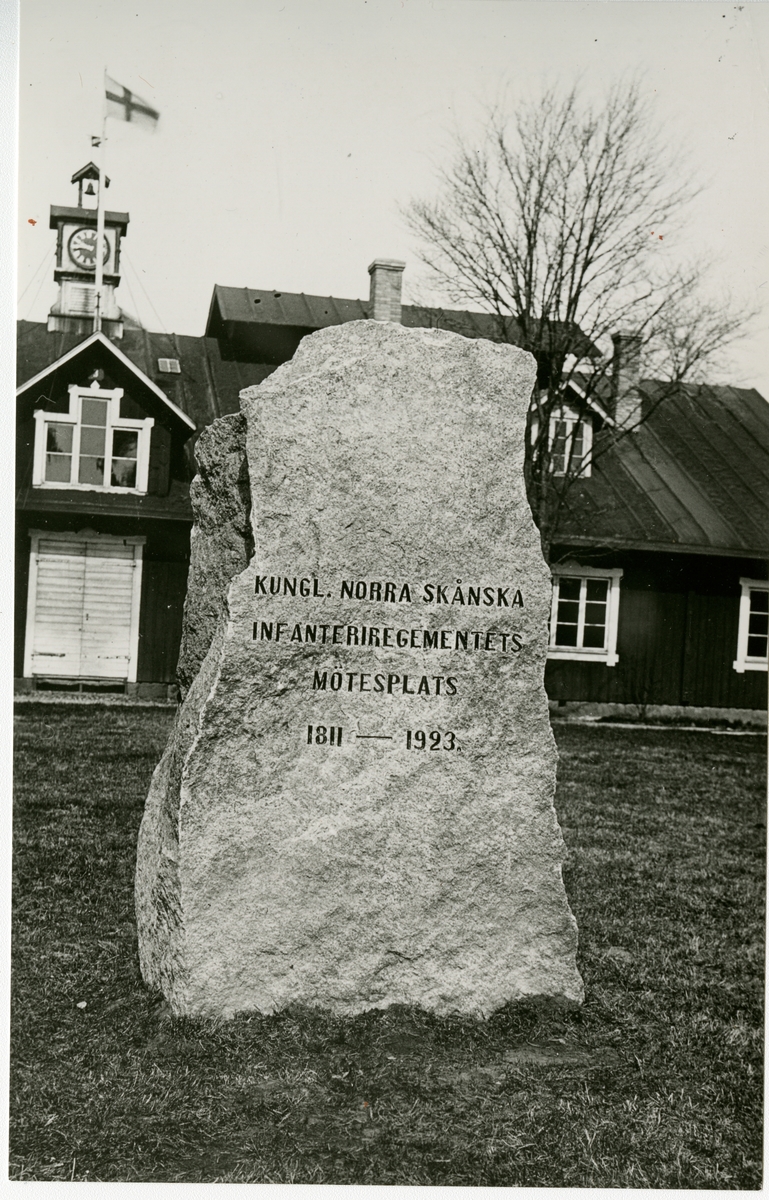 KUNGL. NORRA SKÅNSKA
INFANTERIREGEMENTETS
MÖTESPLATS
1811 — 1923.